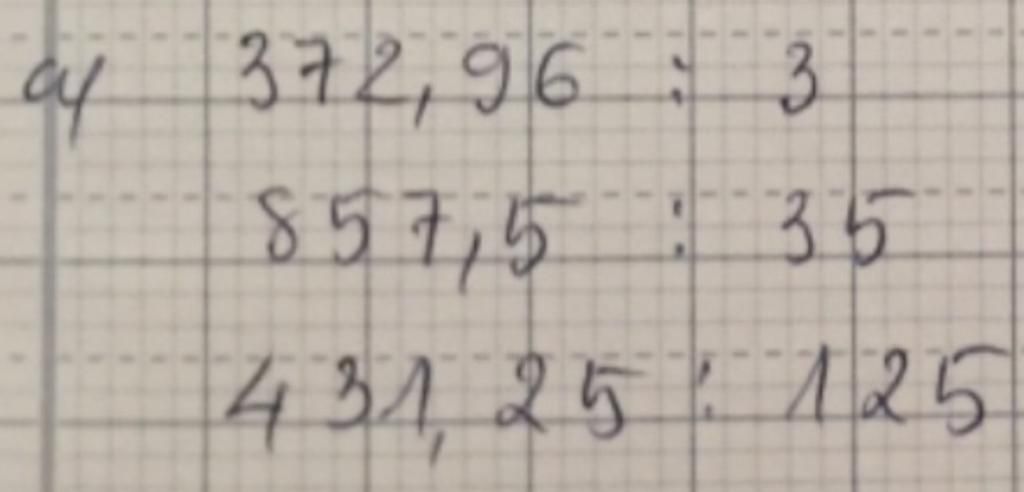 a/ 372,96 : 3
857,5 : 35
431,25 : 125